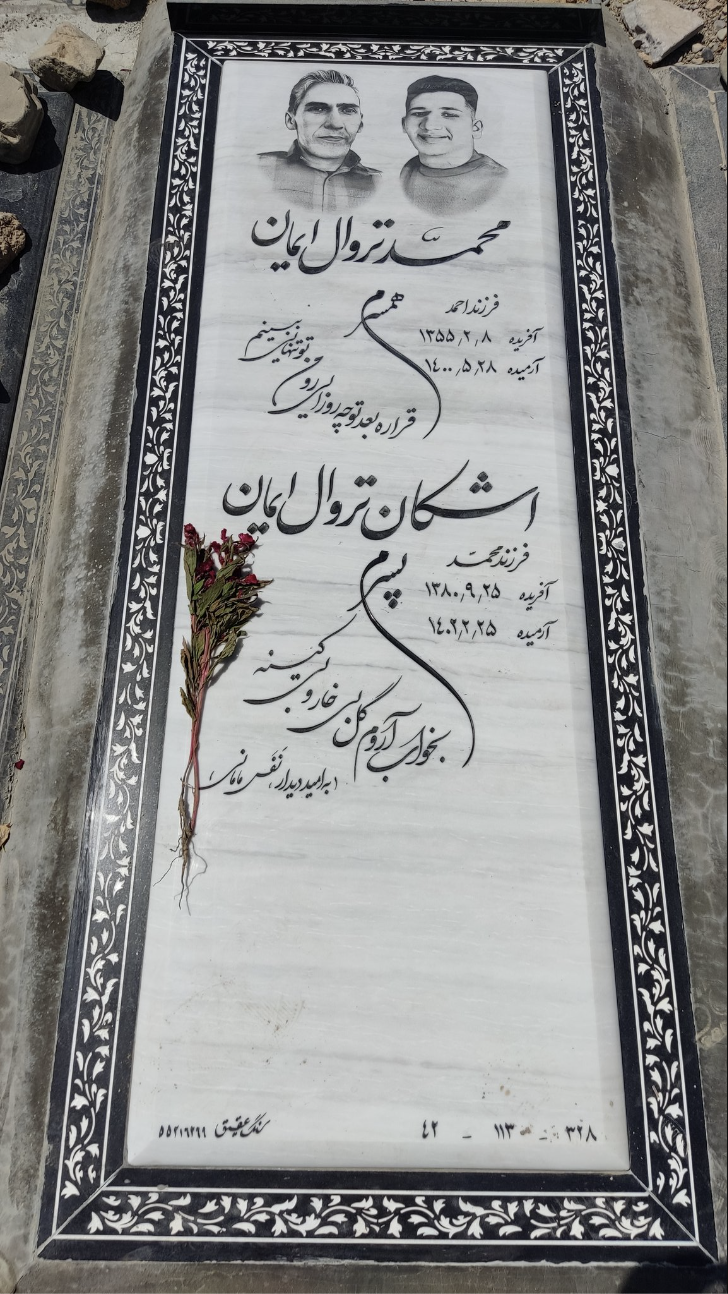 محمّد تروال ایمان
فرزند احمد
آفریده ۱۳۵۵٫۲٫۸
آرمیده ۱۴۰۰٫۵٫۲۸
همسرم
قراره بعد تو چه روزایی رو من
تو تنهایی ببینم
اشکان تروال ایمان
فرزند محمّد
آفریده ۱۳۸۰٫۹٫۲۵
آرمیده ۱۴۰۲٫۲٫۲۵
پسرم
بخواب آروم گل بی خار و بی کینه
(به امید دیدار، نَفَس مامانی)
۳۲۸ - ۱۱۳ - ۴۲
سنگ عقیق ۵۵۲۱۶۲۹۹